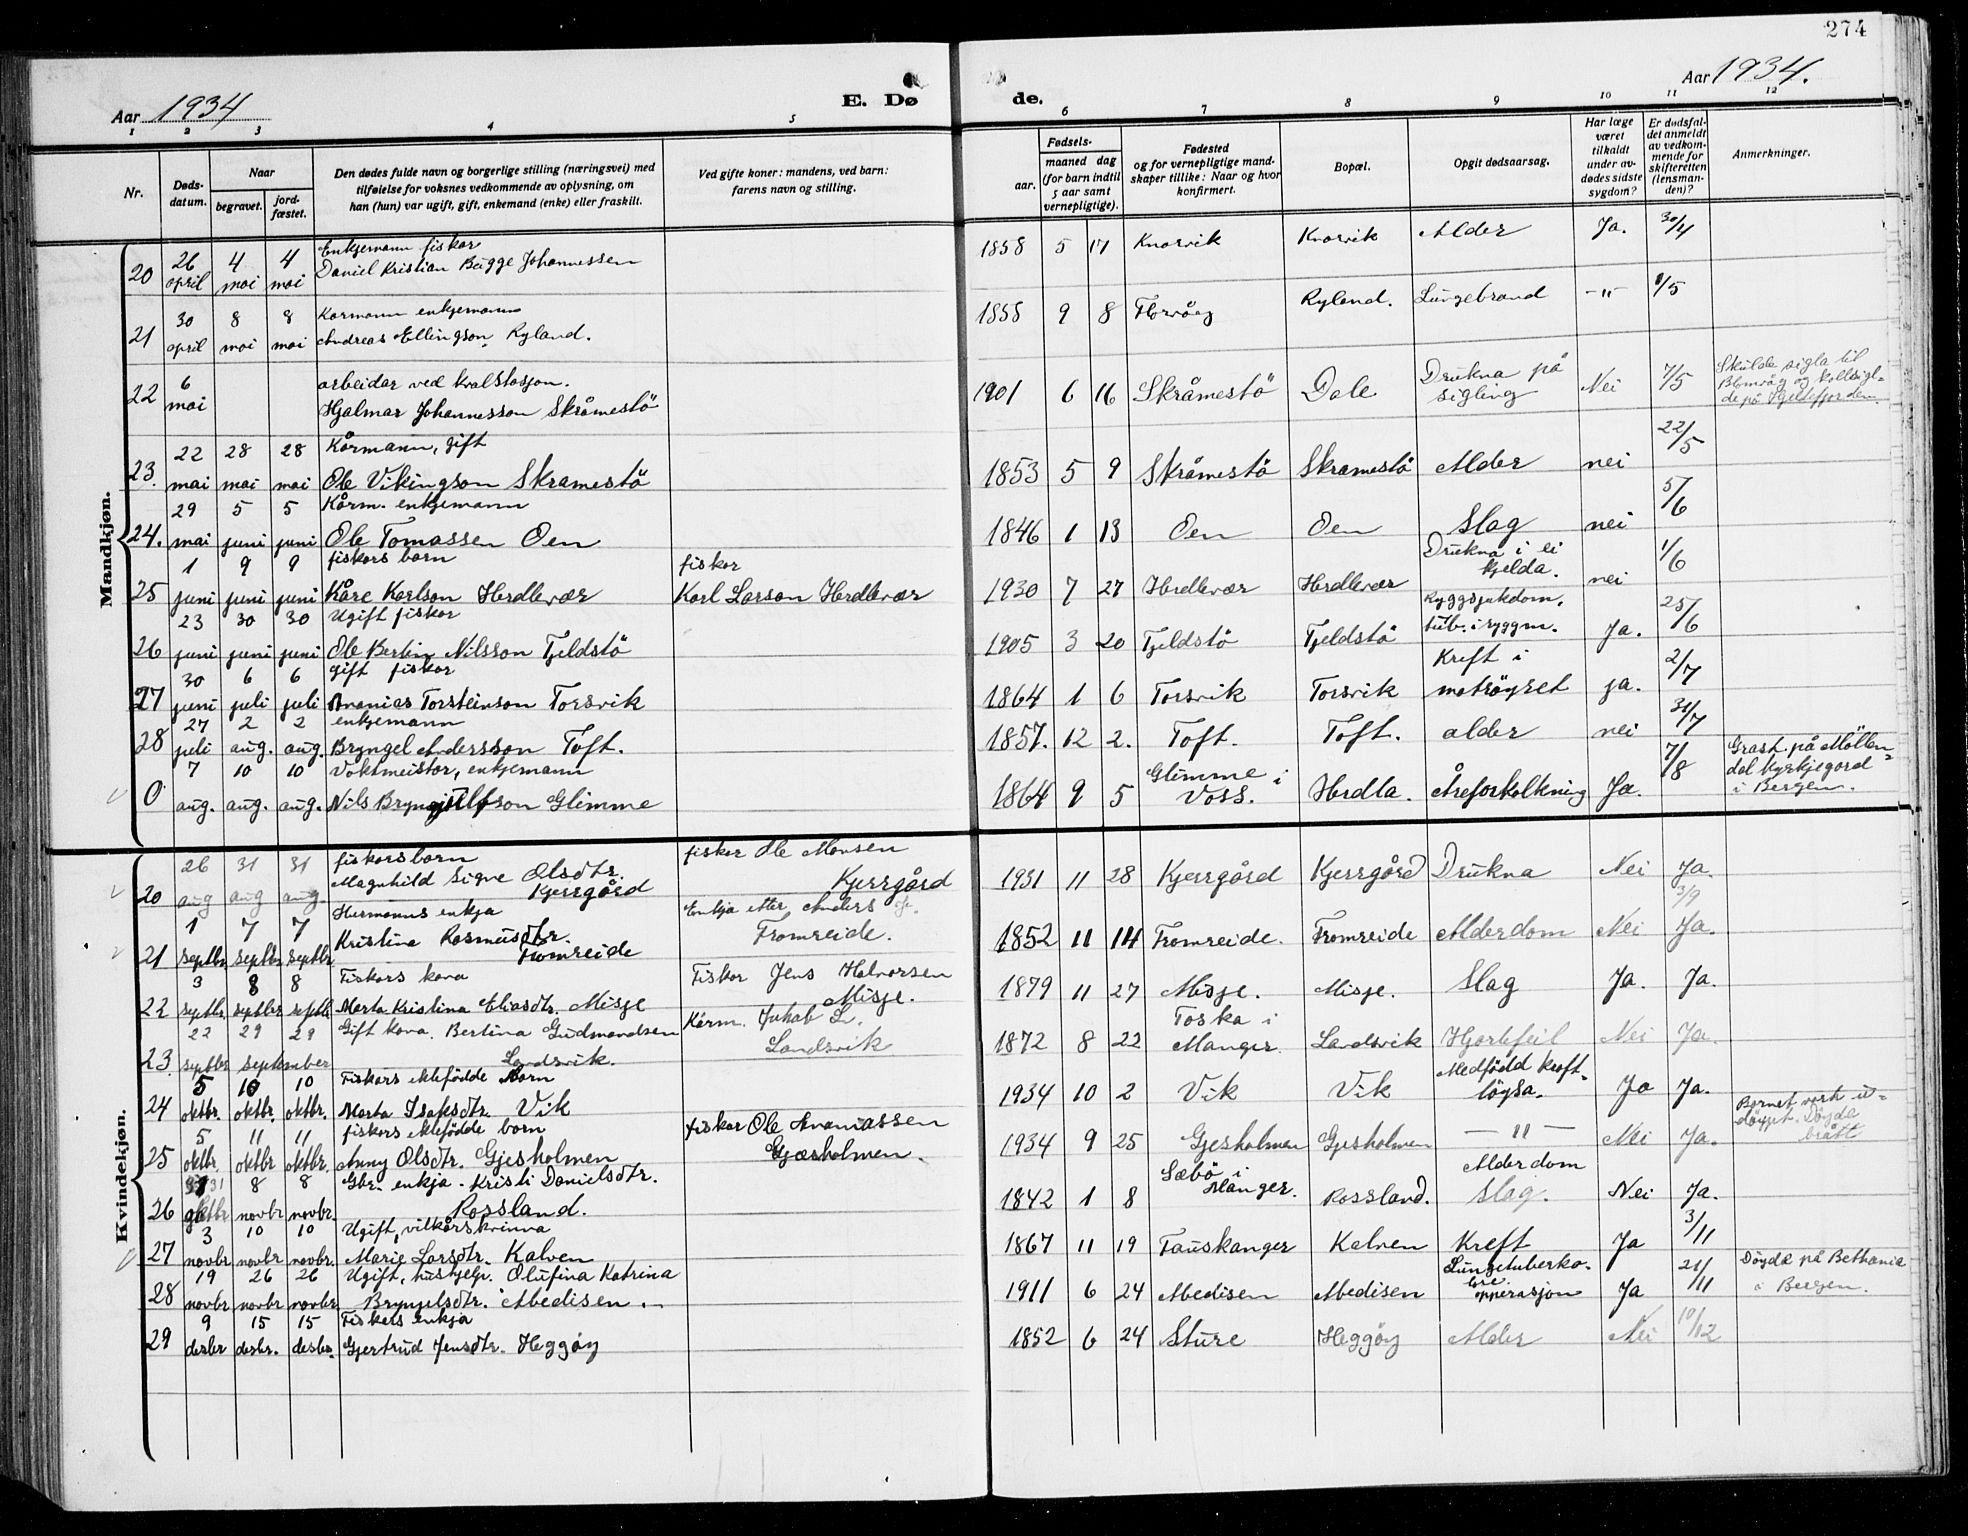 274
Aar 1934
E. Dø
de.
Aar 1934.
1 2 3 4 5 6 7 8 9 10 11 12
Nr.
Døds-
datum.
Naar
begravet.
jord-
fæstet.
Den dødes fulde navn og borgerlige stilling (næringsvei) med
tilføielse for voksnes vedkommende av oplysning, om
han (hun) var ugift, gift, enkemand (enke) eller fraskilt.
Ved gifte koner: mandens, ved barn:
farens navn og stilling.
Fødsels-
aar.
maaned dag
(for barn indtil
5 aar samt
vernepligtige).
Fødested
og for vernepligtige mand-
skaper tillike: Naar og hvor
konfirmert.
Bopæl.
Opgit dødsaarsag.
Har læge
været
tilkaldt
under av-
dødes sidste
sygdom?
Er dødsfal-
det anmeldt
av vedkom-
mende for
skifteretten
(lensman-
den)?
Anmerkninger.
Mandkjøn.
Enkjemann fiskar
20 26 april 4 mai 4 mai Daniel Kristian Bugge Johannessen 1858 5 17 Knarvik Knarvik Alder Ja. 30/4
Kårmann enkjemann
21 30 april 8 mai 8 mai Andreas Ellingson Ryland. 1858 9 8 Florvåg Ryland. Lungebrand -"- 1/5
arbeidar ved kvalstasjon.
22 6 mai Hjalmar Johannesson Skråmestö 1901 6 16 Skråmestö Dale Drukna på sigling Nei 7/5 Skulde sigla til
Blomvåg og kollsigl-
de på Hjeltefjorden.
Kårmann, gift
23. 22 mai 28 mai 28 mai Ole Vikingson Skramestö 1853 5 9 Skråmestö Skramestö Alder nei 22/5
Kårm. enkjemann
24. 29 mai 5 juni 5 juni Ole Tomassen Oen 1846 1 13 Oen Oen Slag nei 5/6
fiskars barn fiskar
25 1 juni 9 juni 9 juni Kåre Karlson Herdlevær Karl Larson Herdlevær 1930 7 27 Herdlevær Herdlevær Drukna i ei kjelda. nei 1/6
Ugift fiskar
26 23 juni 30 juni 30 juni Ole Bertin Nilsson Tjeldstö 1905 3 20 Tjeldstö Tjeldstö Ryggsjukdom. tub. i ryggm. Ja. 25/6
gift fiskar
27 30 juni 6 juli 6 juli Ananias Torsteinson Torsvik 1864 1 6 Torsvik Torsvik Kreft i matröyret ja. 2/7
enkjemann
28 27 juli 2 aug. 2 aug. Bryngel Andersson Toft. 1857. 12 2. Toft. Toft. alder nei 31/7
Vaktmeistar, enkjemann
0 7 aug. 10 aug. 10 aug. Nils Bryngjelfson Glimme 1864 9 5 Glimme i Voss. Herdla. Åreforkalkning Ja. 7/8 Gravl. på Möllen-
dal Kyrkjegard
i Bergen.
Kvindekjøn.
fiskarsborn fiskar Ole Monsen
20 26 aug 31 aug 31 aug. Magnhild Signe Olsdtr. Kjerrgård Kjerrgård 1931 11 28 Kjerrgård Kjerrgård Drukna Nei Ja. 3/9
Hermanns enkja Enkja etter Anders
21 1 septbr 7 septbr 7 septbr Kristina Rasmusdtr. Fromreide Fromreide. 1852 11 14 Fromreide. Fromreide Alderdom Nei Ja.
Fiskars kona Fiskar Jens Halvorsen
22 3 septbr 8 septbr 8 septbr Marta Kristina Eliasdtr. Misje Misje. 1879 11 27 Misje. Misje. Slag Ja. Ja.
23. 22 septbr 29 29 september Gift kona. Bertina Gudmundsen Landsvik. Kårm. Jakob L. Landsvik 1872 8 22 Toska i Manger. Landsvik Hjartefeil Nei Ja.
Fiskars ektefödde barn
24 5 oktbr. 10 oktbr. 10 oktbr. Marta Isaksdtr. Vik 1934 10 2 Vik Vik Medfödd kraft-löysa. Ja Ja.
fiskars ektefödde born
25 5 oktbr. 11 oktbr. 11 oktbr. Anny Olsdtr. Gjesholmen fiskar Ole Ananiassen Gjæsholmen. 1934 9 25 Gjesholmen Gjesholmen -"- Nei Ja. Bornet vart u-
döypt. Döyda
brått
Gbr. enkja. Kristi Danielsdtr.
26 31 oktbr 8 novbr 8 novbr. Rossland. 1842 1 8 Sæbö i Manger. Rossland. Alderdom Slag. Nei Ja.
Ugift, vilkårskvinna
27 3 novbr 10 novbr 10 novbr. Marie Larsdtr. Kalven 1867 11 19 Tauskanger Kalven Kreft Ja 3/11
28 19 novbr 26 novbr 26 novbr Ugift, hushjelp. Olufina Katrina Bryngelsdtr. Abedisen. 1911 6 24 Abedisen Abedisen Lungetuberko-lose. opperasjon Ja 21/11 Döydde på Bethania
i Bergen.
Fiskars enkja
29 9 desbr 15 desbr. 15 desbr. Gjertrud Jensdtr. Heggöy 1852 6 24 Sture Heggöy Alder Nei 10/12